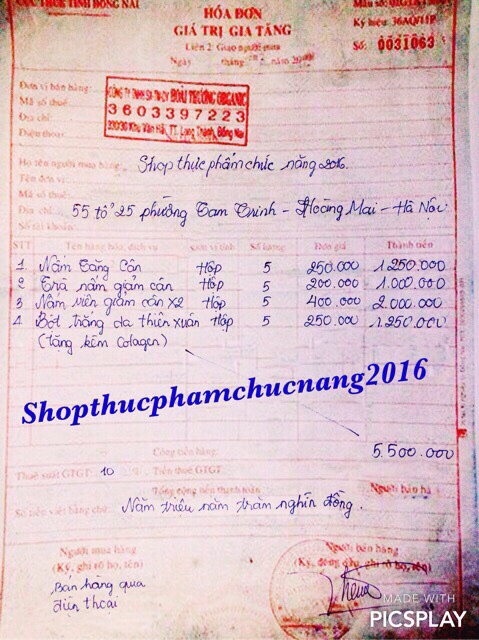 CỤC THUẾ TỈNH ĐỒNG NAI
HÓA ĐƠN
GIÁ TRỊ GIA TĂNG
Liên 2: Giao người mua
Ngày tháng
Ký hiệu: 36AQ/11P
Số: 0031063
Đơn vị bán hàng:
Mã số thuế:
Địa chỉ:
Điện thoại:
3603397223
TT. Long Thành, Đồng Nai
Họ tên người mua hàng: Shop thực phẩm chức năng 2016.
Tên đơn vị:
Mã số thuế:
Địa chỉ: 55 tổ 25 phường Tam Trinh - Hoàng Mai - Hà Nội
Số tài khoản:
STT Tên hàng hóa, dịch vụ Đơn vị tính Số lượng Đơn giá Thành tiền
1 Nấm Tăng Cân Hộp 5 250.000 1.250.000
2 Trà nấm giảm cân Hộp 5 200.000 1.000.000
3 Nấm viên giảm cân X2 Hộp 5 400.000 2.000.000
4 Bột trắng da thiên xuân Hộp 5 250.000 1.250.000
(tặng kèm Colagen)
Shopthucphamchucnang2016
Cộng tiền hàng: 5.500.000
Thuế suất GTGT: 10 % Tiền thuế GTGT:
Tổng cộng tiền thanh toán
Người bán hà
Số tiền viết bằng chữ: Năm triệu năm trăm nghìn đồng.
Người mua hàng
(Ký, ghi rõ họ, tên)
Người bán hàng
(Ký, đóng dấu, ghi rõ họ, tên)
Bán hàng qua
điện thoại
MADE WITH
PICSPLAY